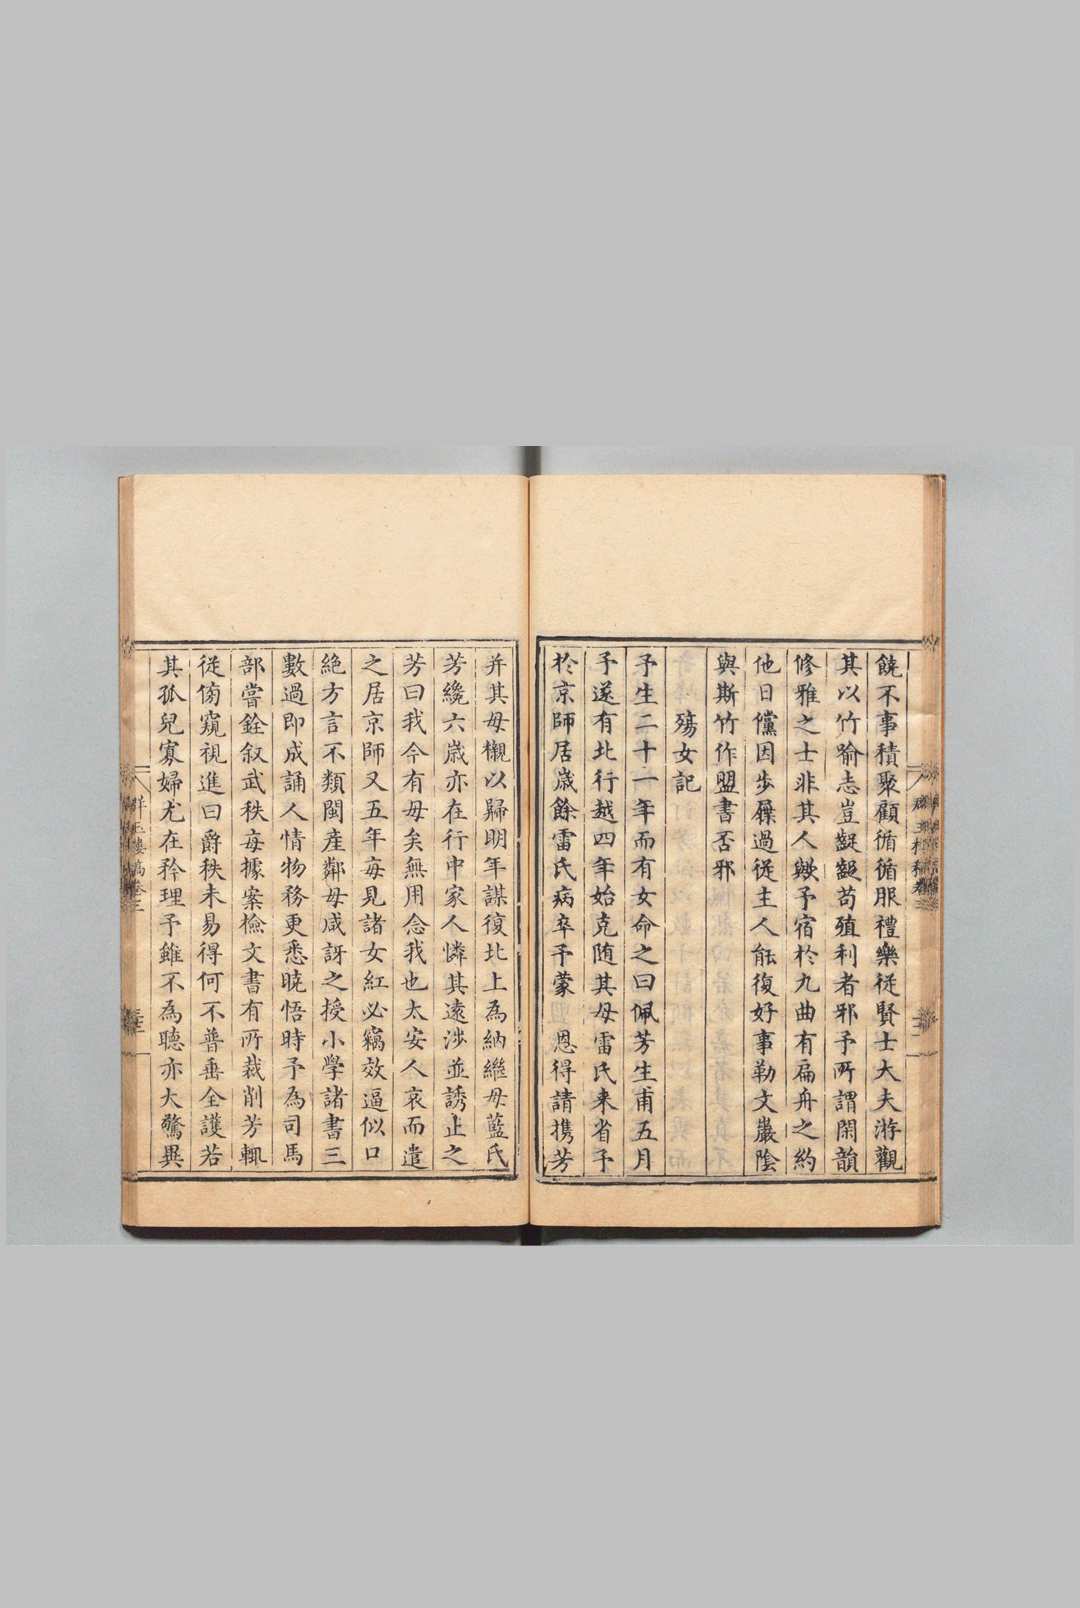 饒不事積聚顧循循服禮樂從賢士大夫游觀
其以竹喻志豈齪齪苟殖利者邪予所謂閑韻
修雅之士非其人歟予宿於九曲有扁舟之約
他日儻因步屧過從主人能復好事勒文巖陰
與斯竹作盟書否邪
殤女記
予生二十一年而有女命之曰佩芳生甫五月
予遂有北行越四年始克随其母雷氏来省予
於京師居歳餘雷氏病卒予蒙恩得請携芳
并其母櫬以歸明年謀復北上為納繼母藍氏
芳纔六歳亦在行中家人憐其遠涉並誘止之
芳曰我今有母矣無用念我也太安人哀而遣
之居京師又五年每見諸女紅必竊效逼似口
絶方言不類閩産鄰母咸訝之授小學諸書三
數過即成誦人情物務更悉曉悟時予為司馬
部嘗銓叙武秩每據案檢文書有所裁削芳輒
從傍窺視進曰爵秩未易得何不普垂全護若
其孤兒寡婦尤在矜理予雖不為聽亦大驚異